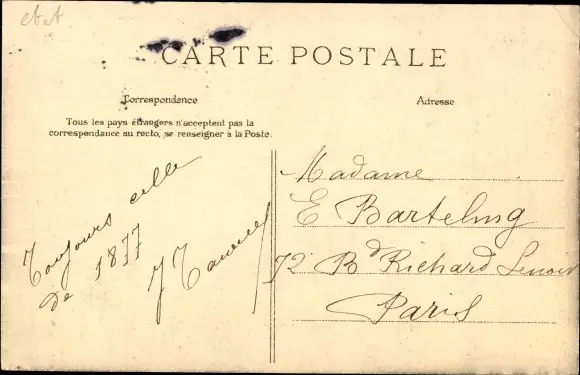 etat
CARTE POSTALE
Correspondance
Adresse
Tous les pays étrangers n'acceptent pas la
correspondance au recto, se renseigner à la Poste.
Toujours celle
de 1877
Madame
E Bartelmg
72 Bd Richard Lenoir
Paris